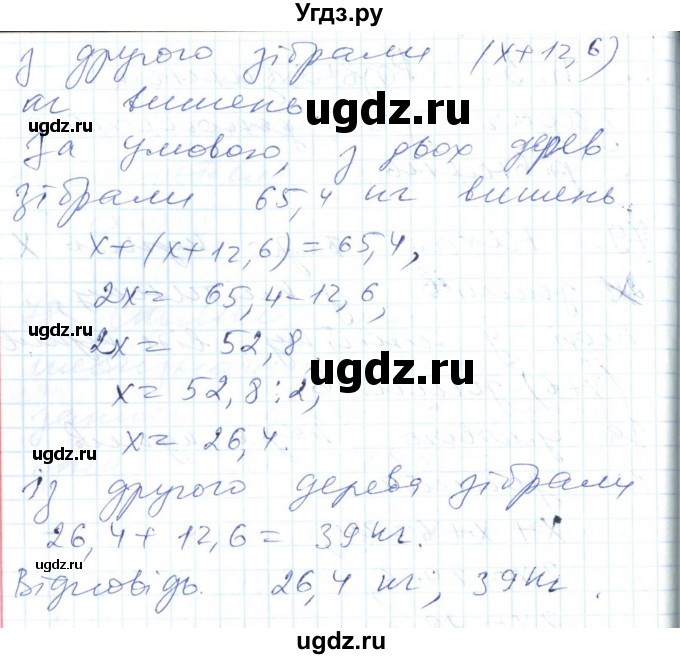 Угдз.ру
з другого зібрали (x+12,6)
кг вишень.
ugdz.ru
ugdz.ru
За умовою, з двох дерев
зібрали 65,4 кг вишень.
x+(x+12,6)=65,4,
2x= 65,4-12,6,
ugdz.ru
2x= 52,8
ugdz.ru
x= 52,8:2,
x= 26,4.
ugdz.ru
із другого дерева зібрали
26,4+12,6= 39 кг.
ugdz.ru
ugdz.ru
Відповідь. 26,4 кг; 39 кг.
ugdz.ru